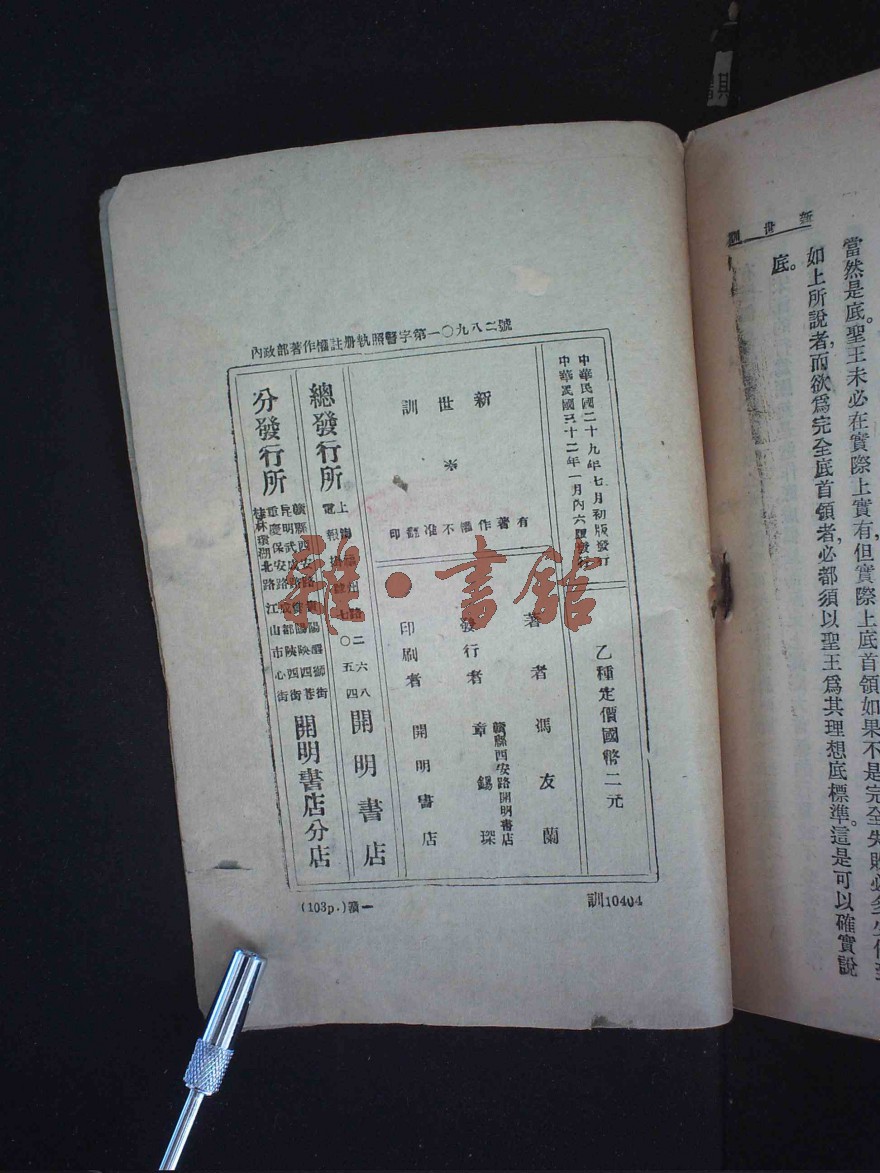 內政部著作權註册執照警字第一〇九八二號
中華民國二十九年七月初版發行
中華民國三十二年一月內六版發行
乙種定價國幣二元
新世訓
*
有著作權不准翻印
著者 馮友蘭
發行者 章錫琛
贛縣西安路開明書店
印刷者 開明書店
總發行所
上海福州路二六八
電報掛號七〇五四
開明書店
分發行所
開明書店分店
訓10404
(103p.)贛一
雜·書館
新世訓
當然是底。聖王未必在實際上實有,但實際上底首領如果不是完全失敗必多少
如上所說者,而欲爲完全底首領者,必都須以聖王爲其理想底標準。這是可以確實說
底。